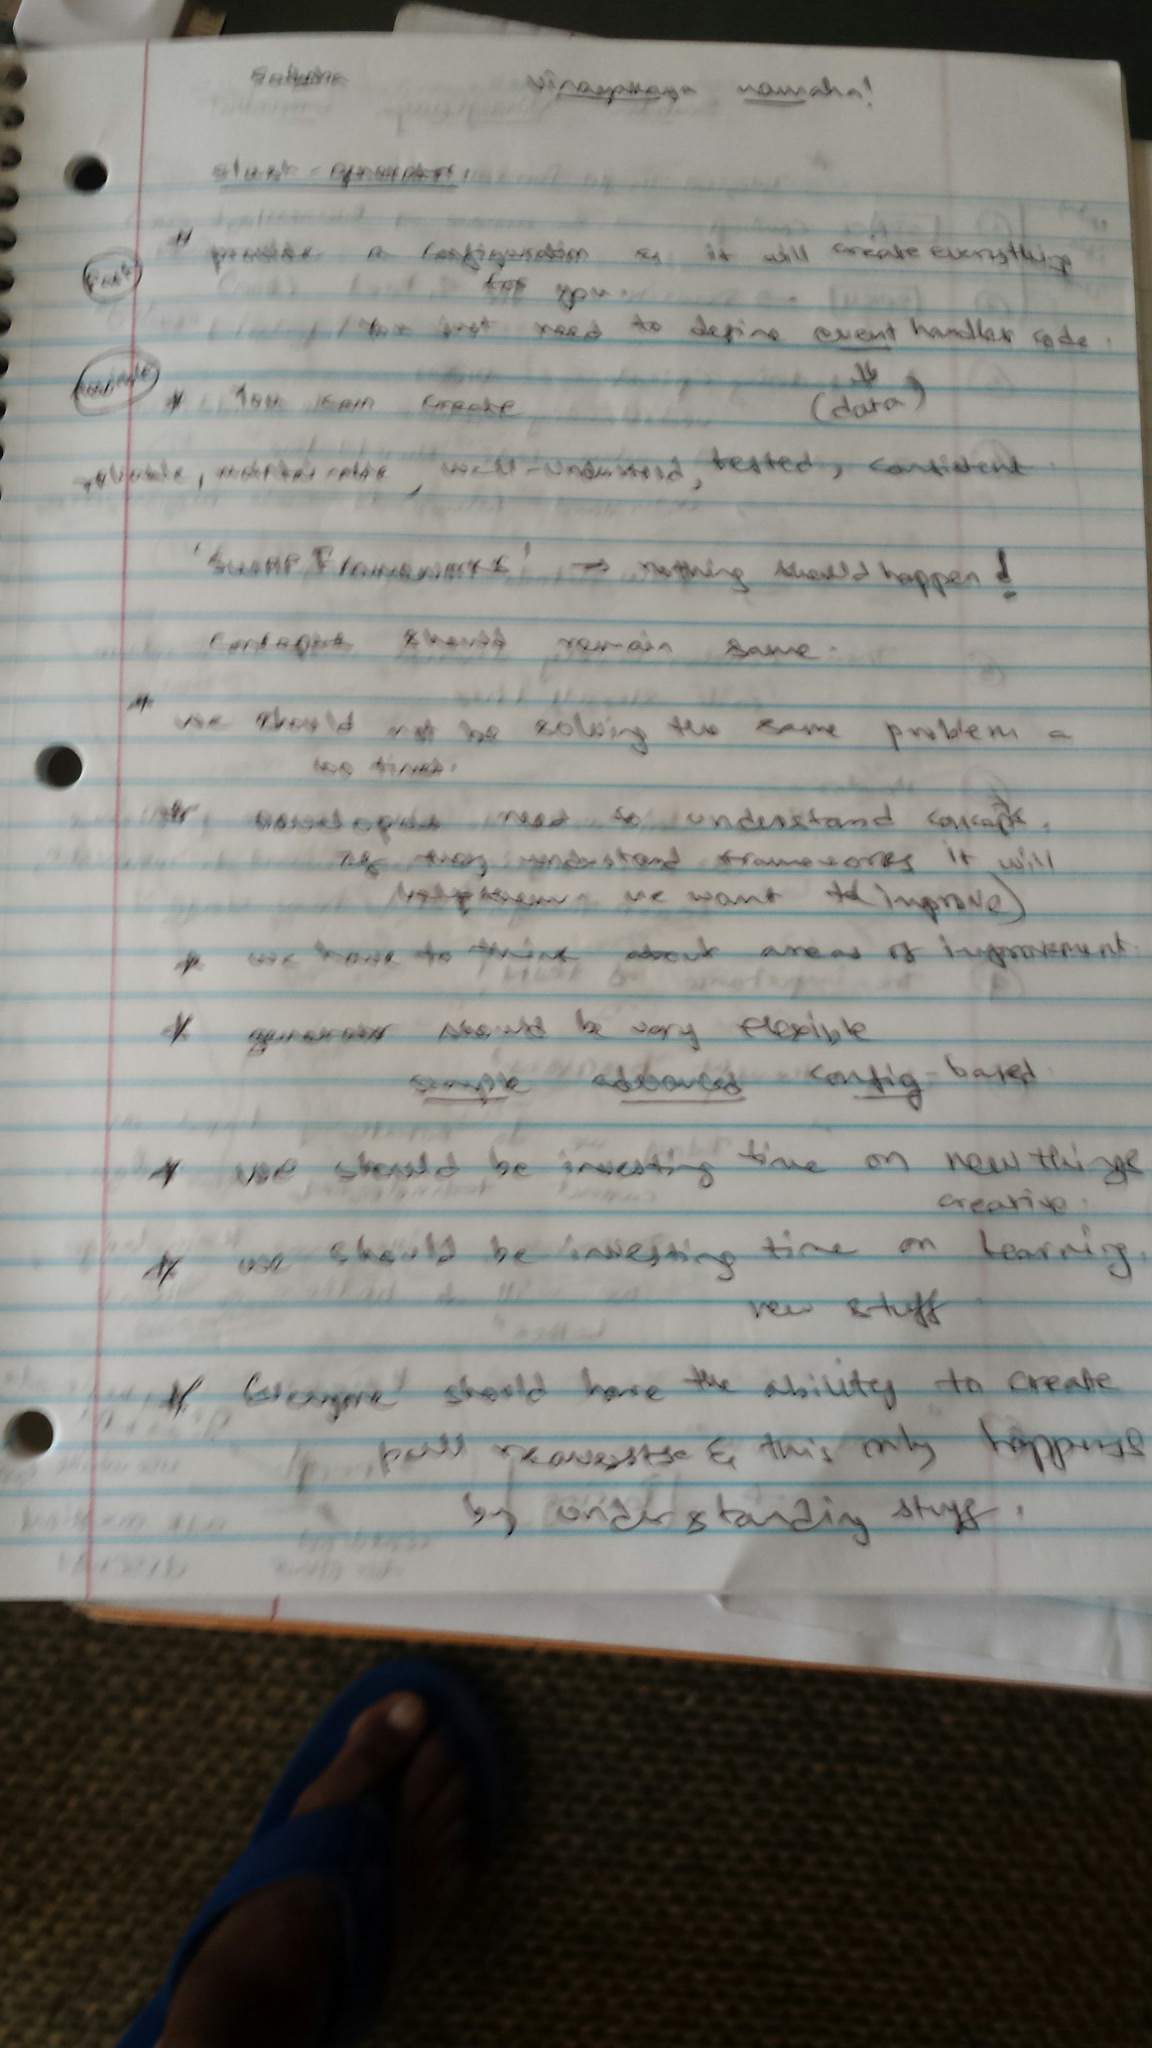 vinayakaya namaha!
provide a configuration & it will create everything
for you.
You just need to define event handler code.
(data)
* You can create
reliable, maintainable, well-understood, tested, consistent.
'SWAP Frameworks' → nothing should happen!
should remain same.
* we should not be solving the same problem a
100 times.
* developers need to understand concepts.
If they understand frameworks it will
help them. we want to (improve)
* we have to think about areas of improvement.
* generator should be very flexible
simple advanced config-based
* we should be investing time on new things
creative.
* we should be investing time on learning.
new stuff
* should have the ability to create
pull requests & this only happens
by understanding stuff.